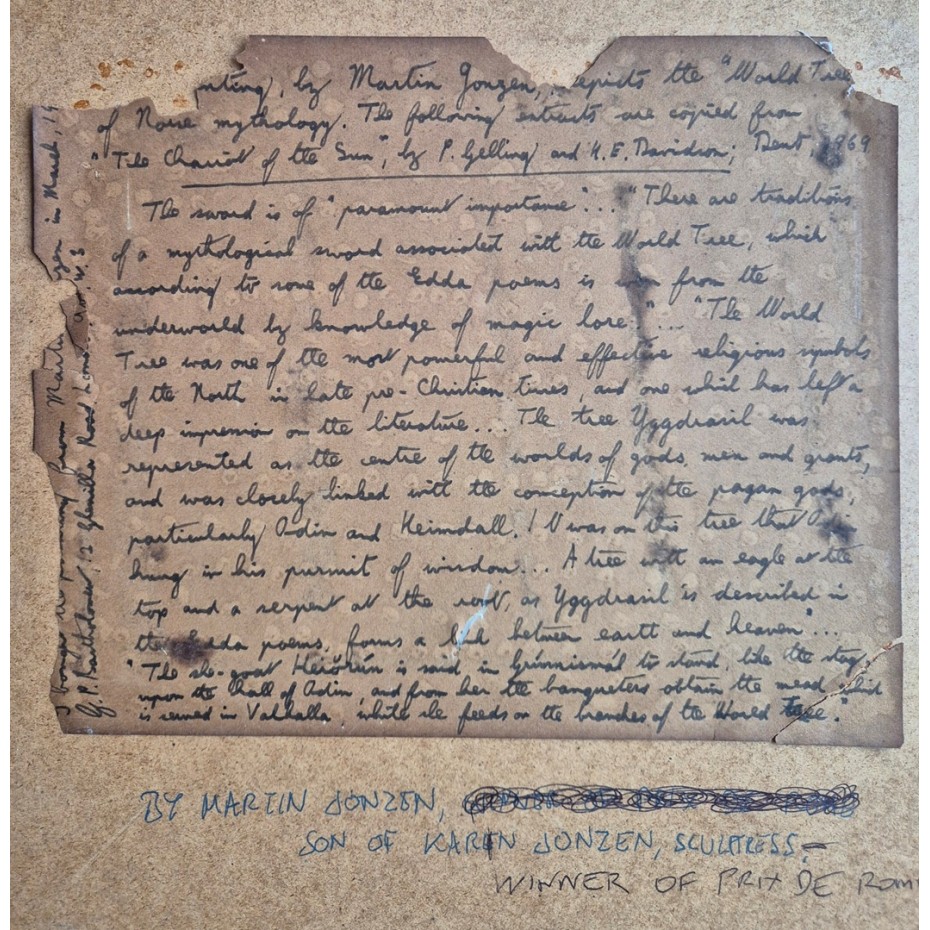 nting, by Martin Jonzen, depicts the "World Tree
of Norse mythology. The following extracts are copied from
"The Chariot of the Sun", by P. Gelling and H. E. Davidson; Dent, 1969
The sword is of "paramount importance"... "There are traditions
of a mythological sword associated with the World Tree, which
according to some of the Edda poems is won from the
underworld by knowledge of magic lore."... "The World
Tree was one of the most powerful and effective religious symbols
of the North in late pre-Christian times, and one which has left a
deep impression on the literature.... The tree Yggdrasil was
represented as the centre of the worlds of gods, men and giants,
and was closely linked with the conception of the pagan gods,
particularly Odin and Heimdall. It was on this tree that
hung in his pursuit of wisdom... A tree with an eagle at the
top and a serpent at the root, as Yggdrasil is described in
the Edda poems, forms a link between earth and heaven"...
"The she-goat Heiðrún is said in Grímnismál to stand, like the stag
upon the Hall of Odin, and from her the banqueters obtain the mead which
is served in Valhalla, while she feeds on the branches of the World Tree."
I bought this painting from Martin Jonzen in March, 19
G. P. Bartholomew, Road
BY MARTIN JONZEN,
SON OF KARIN JONZEN, SCULPTRESS,
WINNER OF PRIX DE ROM